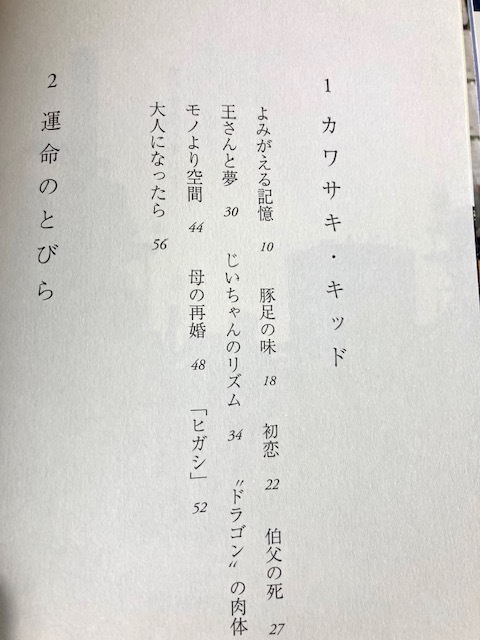 1 カワサキ・キッド
よみがえる記憶 10 豚足の味 18 初恋 22 伯父の死 27
王さんと夢 30 じいちゃんのリズム 34 〝ドラゴン〟の肉体
モノより空間 44 母の再婚 48 「ヒガシ」 52
大人になったら 56
2 運命のとびら